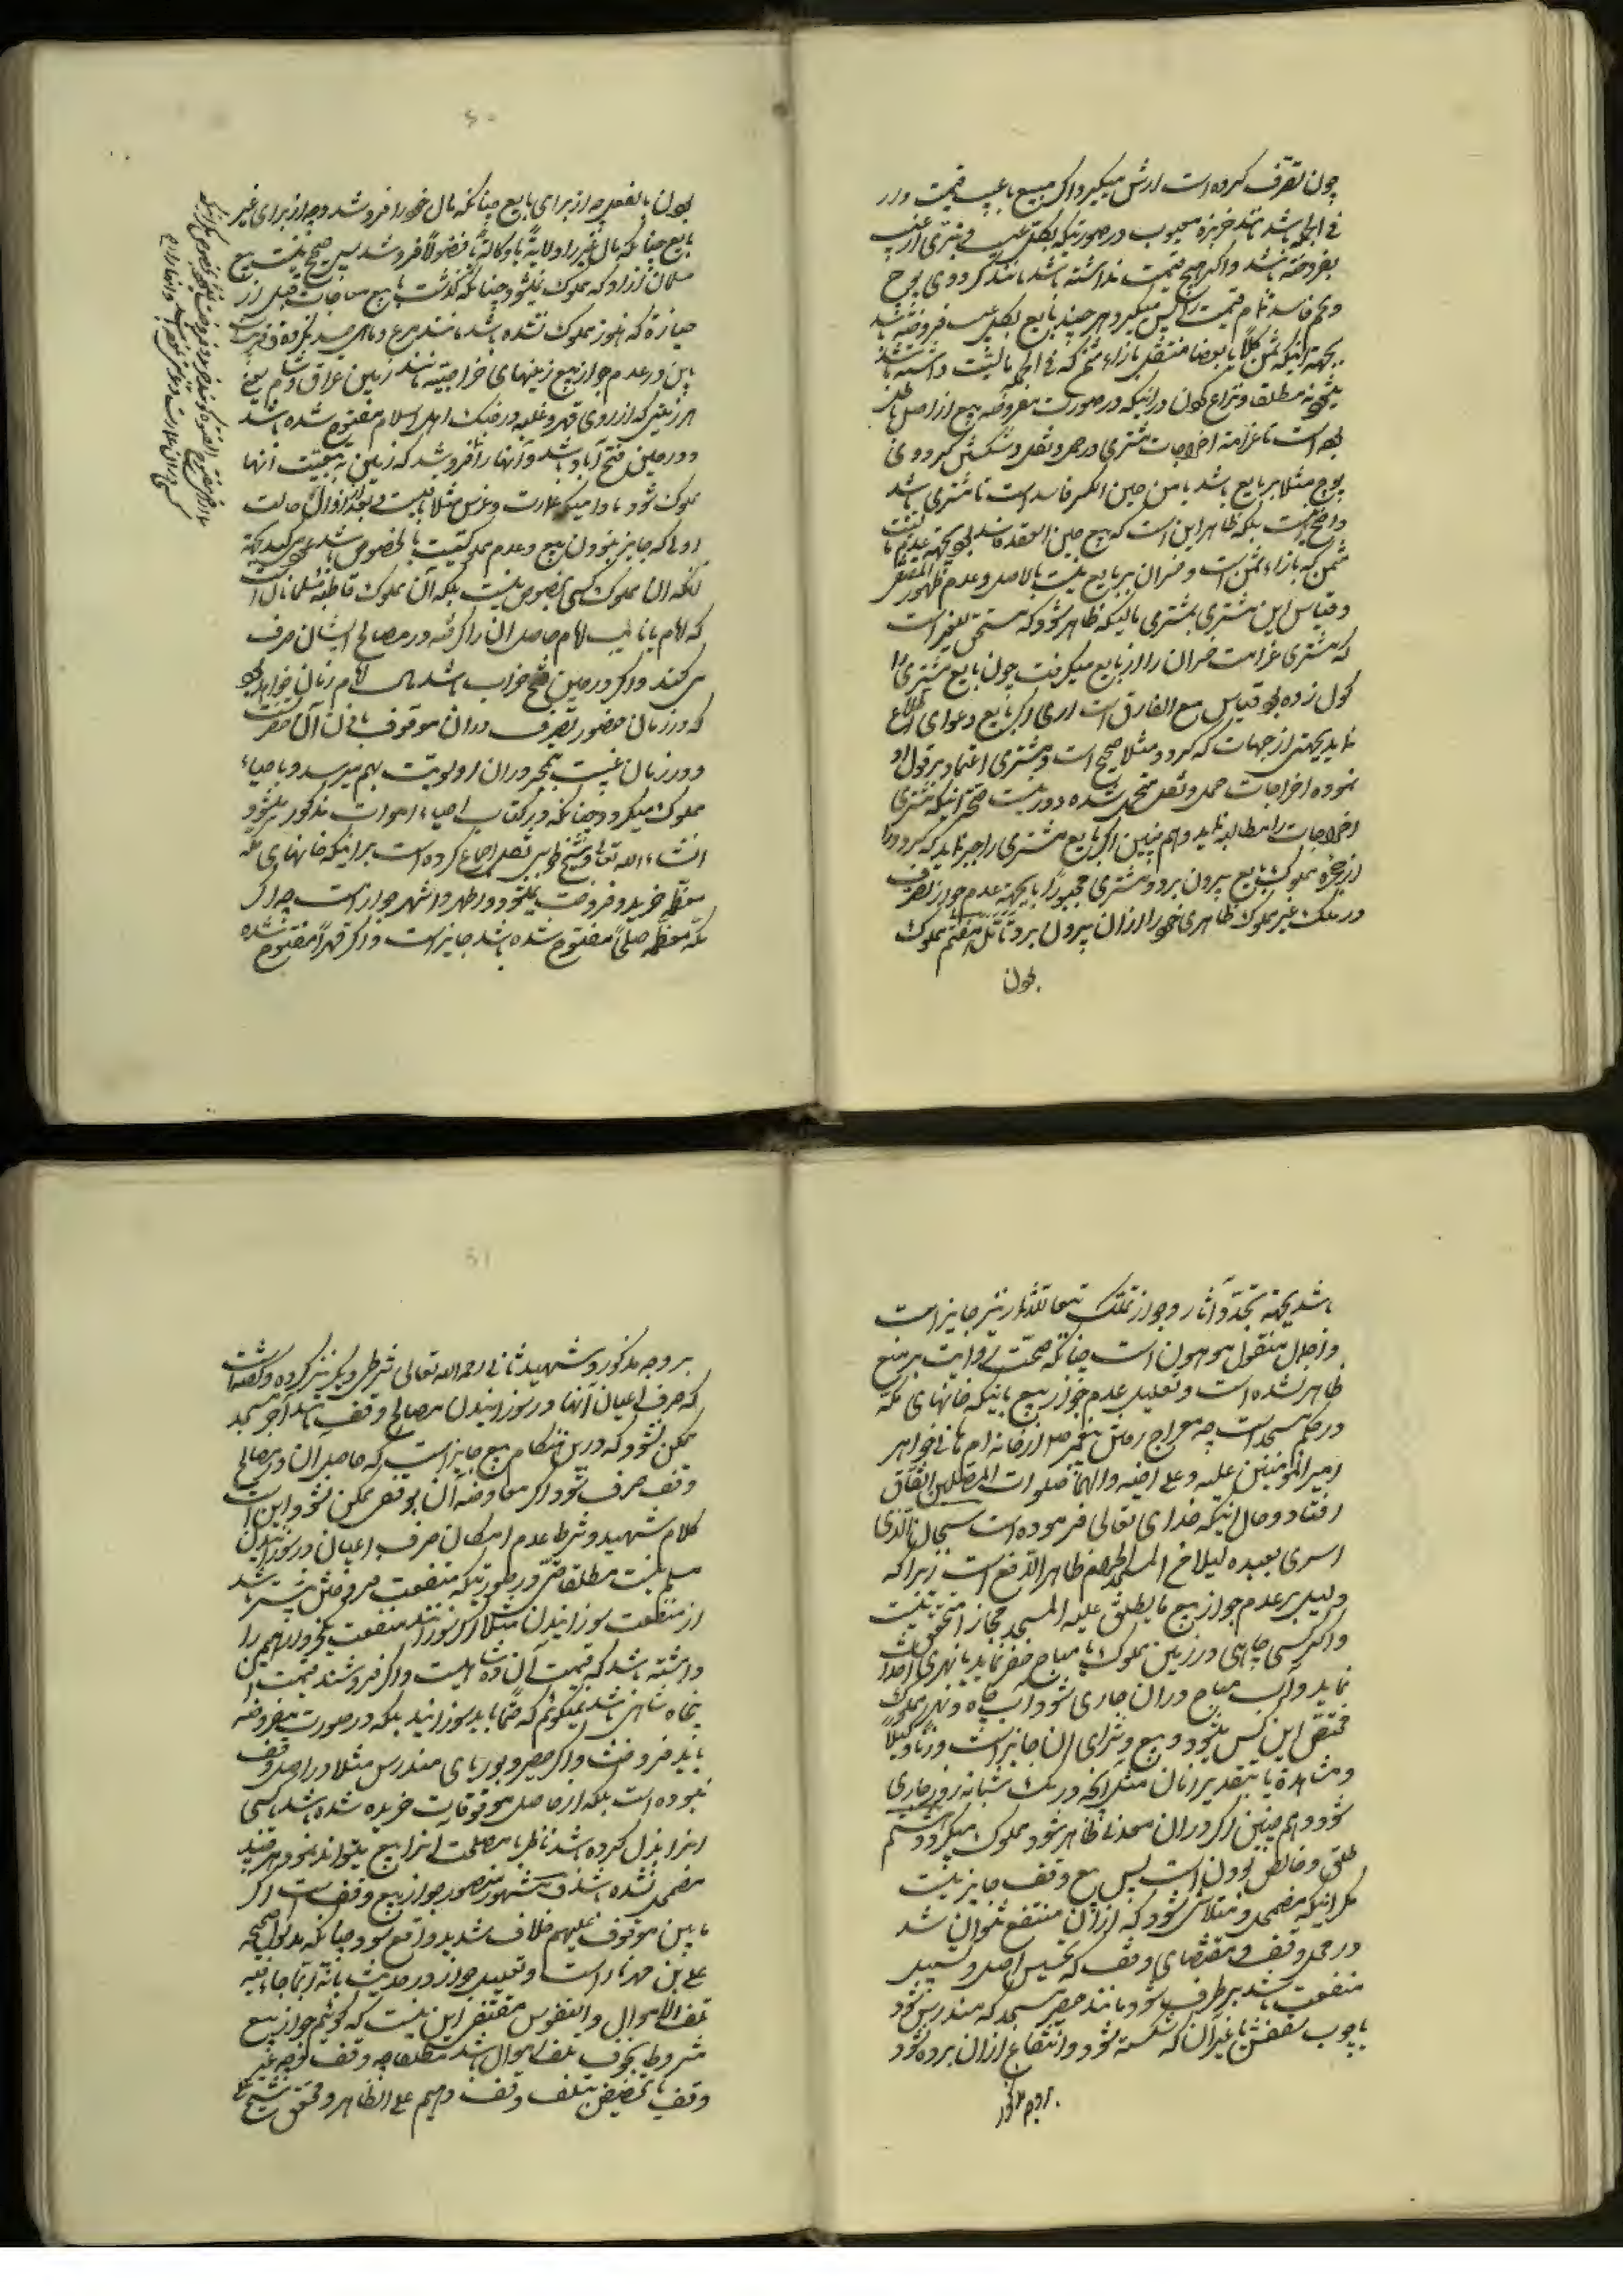 چون تصرف کرده است ارش میگیرد و اگر مبیع با عیب قیمت دار
فی الجمله باشد مانند خربزه معیوب در صورتیکه بکلی عیب و تبری از عیب
بفروخته باشد و اگر هیچ قیمت نداشته باشد مانند گردوی پوچ
و تخم فاسد تمام قیمت را پس میگیرد هر چند بایع بکل عیب فروخته باشد
بجهة اینکه ثمن کلاً یا بعضا منتقل بازاء مثمن که فی الجمله مالیت داشته باشد
میشود نه مطلقا و نزاع کردن در اینکه در صورت مفروضه بیع از اصل باطل
بوده است تا غرامة اخراجات مشتری در حمل و نقل و شکستن گردوی
پوچ مثلا بر بایع باشد یا من حین الکسر فاسد است تا مشتری باشد
واضح است بلکه ظاهر این است که بیع حین العقد فاسد بوده بجهة عدم
مثمن که بازاء ثمن است و خسران بر بایع نیست بالاصل و عدم ظهور
و قیاس این مشتری بمشتری مالیکه ظاهر شود که مستحق للغیر است
که مشتری غرامت خسران را از بایع میگرفت چون بایع مشتری را
گول زده بود قیاس مع الفارق است اری اگر بایع دعوای اطلاع
نماید بجهتی از جهات که گردو مثلا صحیح است و مشتری اعتماد بر قول او
نموده اخراجات حمل و نقل متحمل شده دور نیست صحة اینکه مشتری
اخراجات را مطالبه نماید و هم چنین اگر بایع مشتری را جبر نماید که گردو را
از حجره مملوک بایع بیرون برد و مشتری مجبوراً یا بجهة عدم جواز تصرف
در ملک غیر مملوک ظاهری خود را از ان بیرون برد تأمل هفتم مملوک
بودن
بودن بالفعل چه از برای بایع چنانکه مال خود را فروشد و چه از برای غیر
بایع چنانکه مال غیر را ولایةً یا وکالةً یا فضولاً فروشد پس صحیح نیست بیع
مسلمان آزاد که مملوک نمیشود چنانکه گذشت یا بیع مباحات قبل از
حیازة که هنوز مملوک نشده باشد مانند مرغ و ماهی صید نکرده
پس در عدم جواز بیع زمینهای خراجیّه مانند زمین عراق و شام یعنی
هر زمینی که از روی قهر و غلبه در جنگ اهل اسلام مفتوح شده باشد
و در حین فتح آباد باشد و آنها را فروشد که زمین به تبعیّت آنها
مملوک شود مادامیکه عمارت و غرس مثلا باقیست و بعد از زوال حالت
اولی که جایز نبودن بیع و عدم مملوکیّت بالخصوص باشد عود میکند بجهة
انکه ان مملوک کسی بخصوص نیست بلکه آن مملوک قاطبه مسلمانان است
که امام یا نایب امام حاصل ان را گرفته در مصالح ایشان صرف
می کند و اگر در حین فتح خراب باشد مال امام زمان خواهد بود
که در زمان حضور تصرف در ان موقوف باذن آن حضرت
و در زمان غیبت بتحجیر در ان اولویّت بهم میرسد و باحیاء
مملوک میگردد چنانکه در کتاب احیاء اموات مذکور میشود
انشاء الله تعالی و شیخ طوسی نقل اجماع کرده است بر اینکه خانهای مکه
معظمه خرید و فروخت نمیشود و اظهر و اشهر جواز است چه اگر
مکه معظمه صلحاً مفتوح شده باشد جایز است و اگر قهراً مفتوح شده
باشد بجهة تجدّد آثار و جواز تملک تبعا للآثار نیز جایز است
و اجماع منقول موهون است چنانکه صحّت روایت بر منع
ظاهر نشده است و تعلیل عدم جواز بیع باینکه خانهای مکه
در حکم مسجد است چه معراج رفتن پیغمبر ص از خانه ام هانی خواهر
امیر المؤمنین علیه و علی اخیه و الهما صلوات المصلین اتفاق
افتاد و حال اینکه خدای تعالی فرموده است سبحان الذی
اسری بعبده لیلا من المسجد الحرام ظاهر الدّفع است زیرا که
دلیل بر عدم جواز بیع ما یطلق علیه المسجد مجازا متحقق نیست
و اگر کسی چاهی در زمین مملوک یا مباح حفر نماید یا نهری احداث
نماید و آب مباح در ان جاری شود آب چاه و نهر مملوک
مختص این کس میشود و بیع و شرای ان جایز است وزناً و کیلاً
و مشاهدة یا بتقدیر زمان مثل آنچه در یک شبانه روز جاری
شود و هم چنین اگر در ان معدنی ظاهر شود مملوک میگردد هشتم
طلق و خالص بودن است پس بیع وقف جایز نیست
مگر اینکه مضمحل و متلاشی شود که از ان منتفع نتوان شد
در محل وقف و مقتضای وقف که تحبیس اصل و تسبیل
منفعت باشد بر طرف شود مانند حصیر مسجد که مندرس شود
یا چوب سقفش یا غیر آن که شکسته شود و انتفاع از ان برده نشود
بر وجه مذکور
بر وجه مذکور و شهید ثانی رحمه الله تعالی شرطی دیگر نیز کرده و گفته است
که صرف اعیان آنها در سوزانیدن مصالح وقف مانند آجر مسجد
ممکن نشود که در این هنگام بیع جایز است که حاصل ان در مصالح
وقف صرف شود اگر معاوضه آن بوقفی ممکن نشود و این است
کلام شهید و شرط عدم امکان صرف اعیان در سوزانیدن
مسلم نیست مطلقا حتی در صورتیکه منفعت فروختش بیشتر باشد
از منفعت سوزانیدن مثلا اگر سوزانند منفعت یکخروار هیمه را
داشته باشد که قیمت آن ده شاهیست و اگر فروشند قیمت این
پنجاه شاهی باشد نمیگوئیم که حتماً باید سوزانید بلکه در صورت مفروضه
باید فروخت و اگر حصیر و بوریای مندرس مثلا در اصل وقف
نبوده است بلکه از حاصل موقوفات خریده شده باشد یا کسی
انرا بذل کرده باشد ناظر با مصلحت انرا بیع میتواند نمود هر چند
مضمحل نشده باشد و مشهور جواز بیع وقف است اگر
ما بین موقوف علیهم خلاف شدید واقع شود چنانکه مدلول صحیحه
علی بن مهزیار است و تعلیل جواز در حدیث بانّه ربّما جاء فیه
تلف الاموال و النفوس مقتضی این نیست که گوئیم جواز بیع
مشروط بخوف تلف اموال باشد مطلقا چه وقف و چه غیر
وقف یا تخصیص بتلف وقف دهیم علی الظاهر و محقق شیخ علی